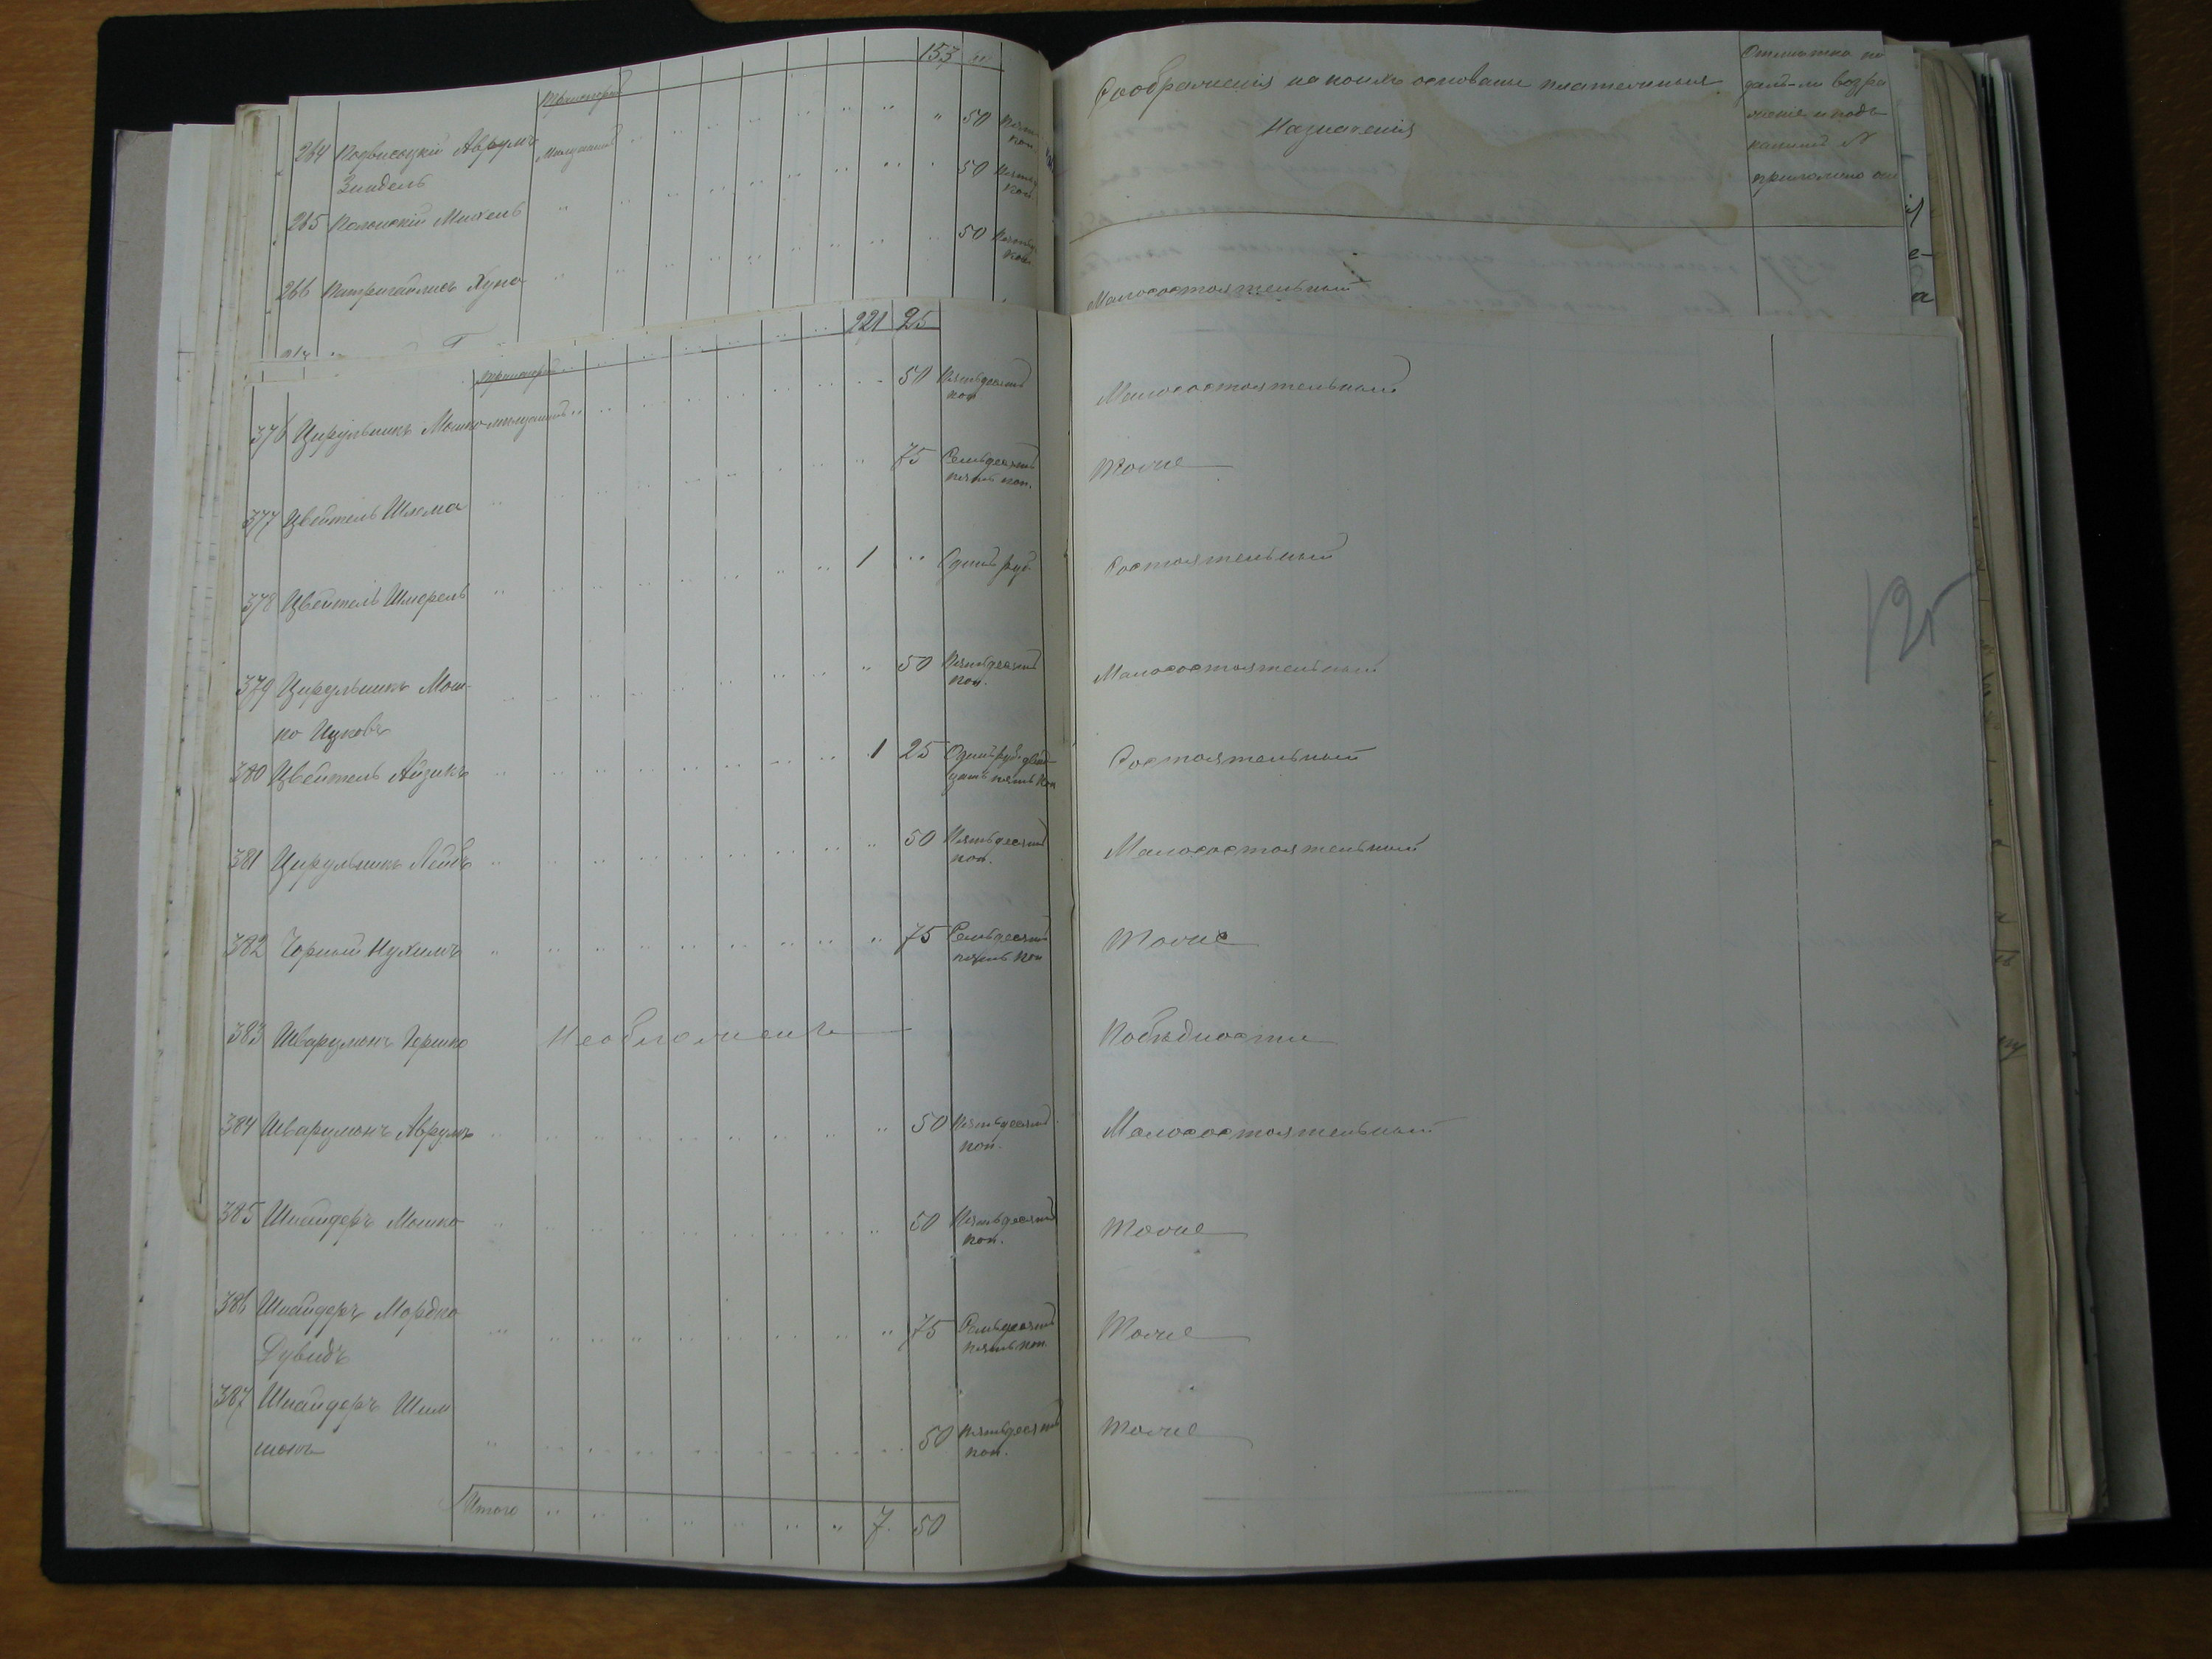 153 "
Транспортъ
264 Подвисоцкій Аврумъ Мещанинъ " 50 Пятьд. коп.
Зиндель
265 Полонскій Михель " 50 Пятьд. коп.
266 Хуна " 50 Пятьд. коп.
Соображенія на коихъ основаны платежныя
Назначенія
Отмѣтка по
далъ-ли возра
женіе и подъ
какимъ №
приложено оно
Малосостоятельный
221 25
Транспортъ
376 Цирульникъ Мошко мещанинъ 50 Пятьдесятъ коп Малосостоятельный
377 Цвейтель Шлема 75 Семьдесятъ пять коп. Тоже
378 Цвейтель Шмерель 1 " Одинъ руб Состоятельный
379 Цирульникъ Мош- " 50 Пятьдесятъ коп. Малосостоятельный
ко Ицковъ
380 Цвейтель Айзикъ 1 25 Одинъ руб. двад цать пять коп Состоятельный
381 Цирульникъ Лейбъ " 50 Пятьдесятъ коп. Малосостоятельный
382 Чорный Нухимъ " 75 Семьдесятъ пять коп Тоже
383 Шварцманъ Гершко Необложенъ По бѣдности
384 Шварцманъ Аврумъ " 50 Пятьдесятъ коп. Малосостоятельный
385 Шнайдеръ Мошко " 50 Пятьдесятъ коп. Тоже
386 Шнайдеръ Мордко " 75 Семьдесятъ пять коп. Тоже
Дувидъ
387 Шнайдеръ Шим 50 Пятьдесятъ коп. Тоже
шонъ
Итого 7. 50
125